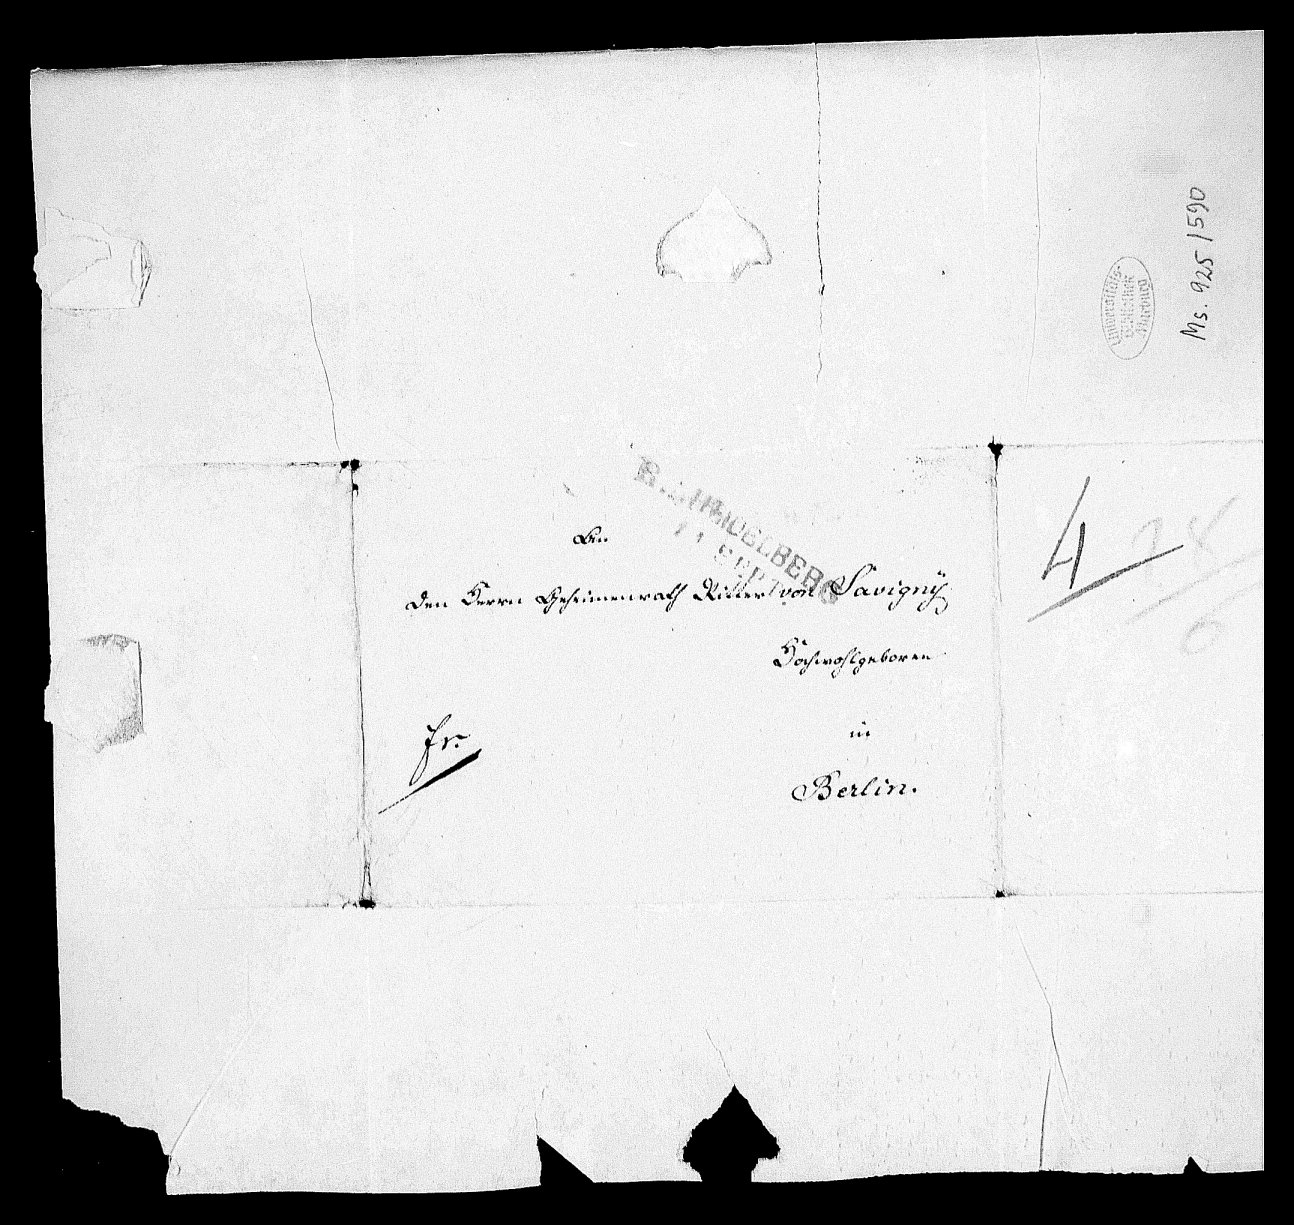 Ms. 925/590
Universitäts-
Bibliothek
Marburg
HEIDELBERG
11 SEPT
An
den Herrn Geheimenrath Ritter von Savigny
Hochwohlgeboren
in
Berlin.
fr.
4